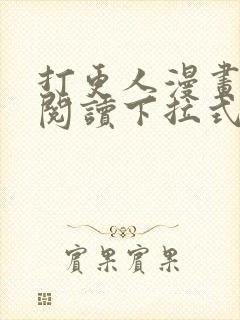 打更人漫畫
閱讀下拉式
實果實果